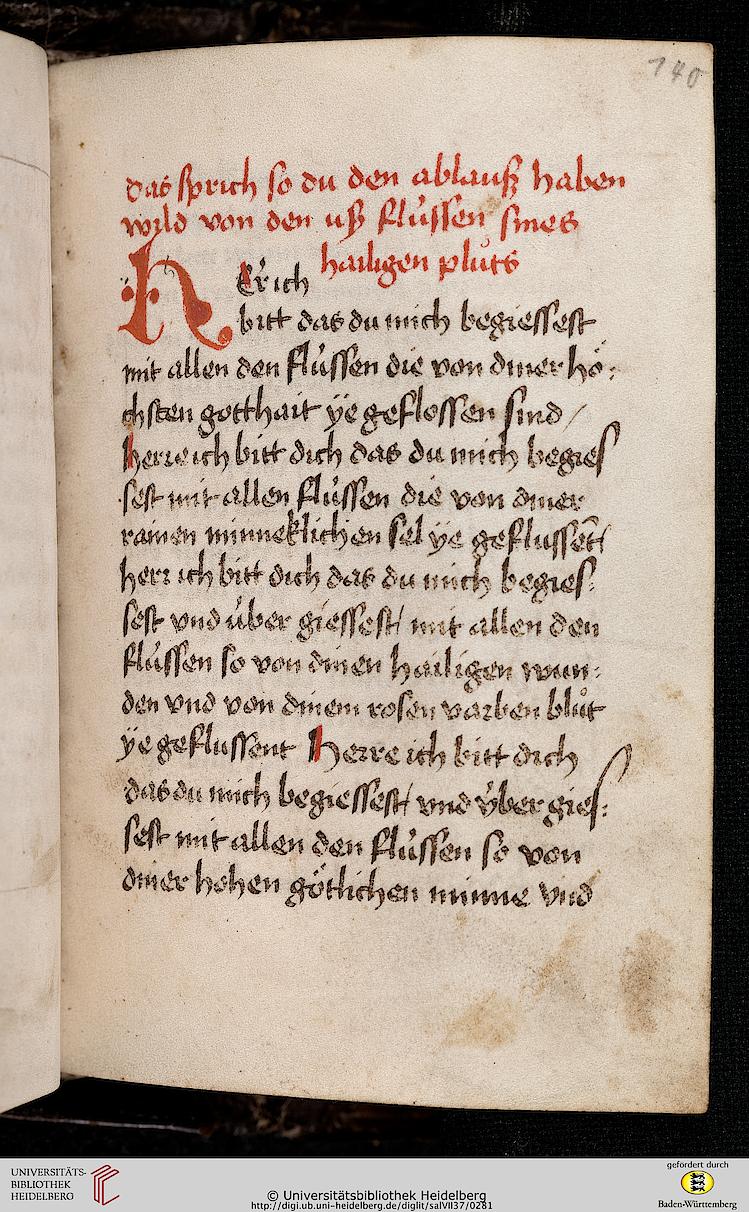 140
das sprich so du den ablauß haben
wild von den uß flússen sines
hailigen pluͦts
HEr ich
bitt das du mich begiessest
mit allen den flússen die von diner hö:
chsten gotthait ÿe geflossen sind /
herre ich bitt dich das du mich begies
sest mit allen flússen die von diner
rainen minneklichen sel ÿe geflussēt /
herr ich bitt dich das du mich begies:
sest vnd úber giessest / mit allen den
flússen so von dinen hailigen wun:
den vnd von dinem rosen varben bluͦt
ÿe geflussent Herre ich bitt dich
das du mich begiessest / vnd v́ber gies:
sest mit allen den flússen so von
diner hohen götlichen minne vnd
UNIVERSITÄTS-
BIBLIOTHEK
HEIDELBERG
© Universitätsbibliothek Heidelberg
http://digi.ub.uni-heidelberg.de/diglit/salVII37/0281
gefördert durch
Baden-Württemberg